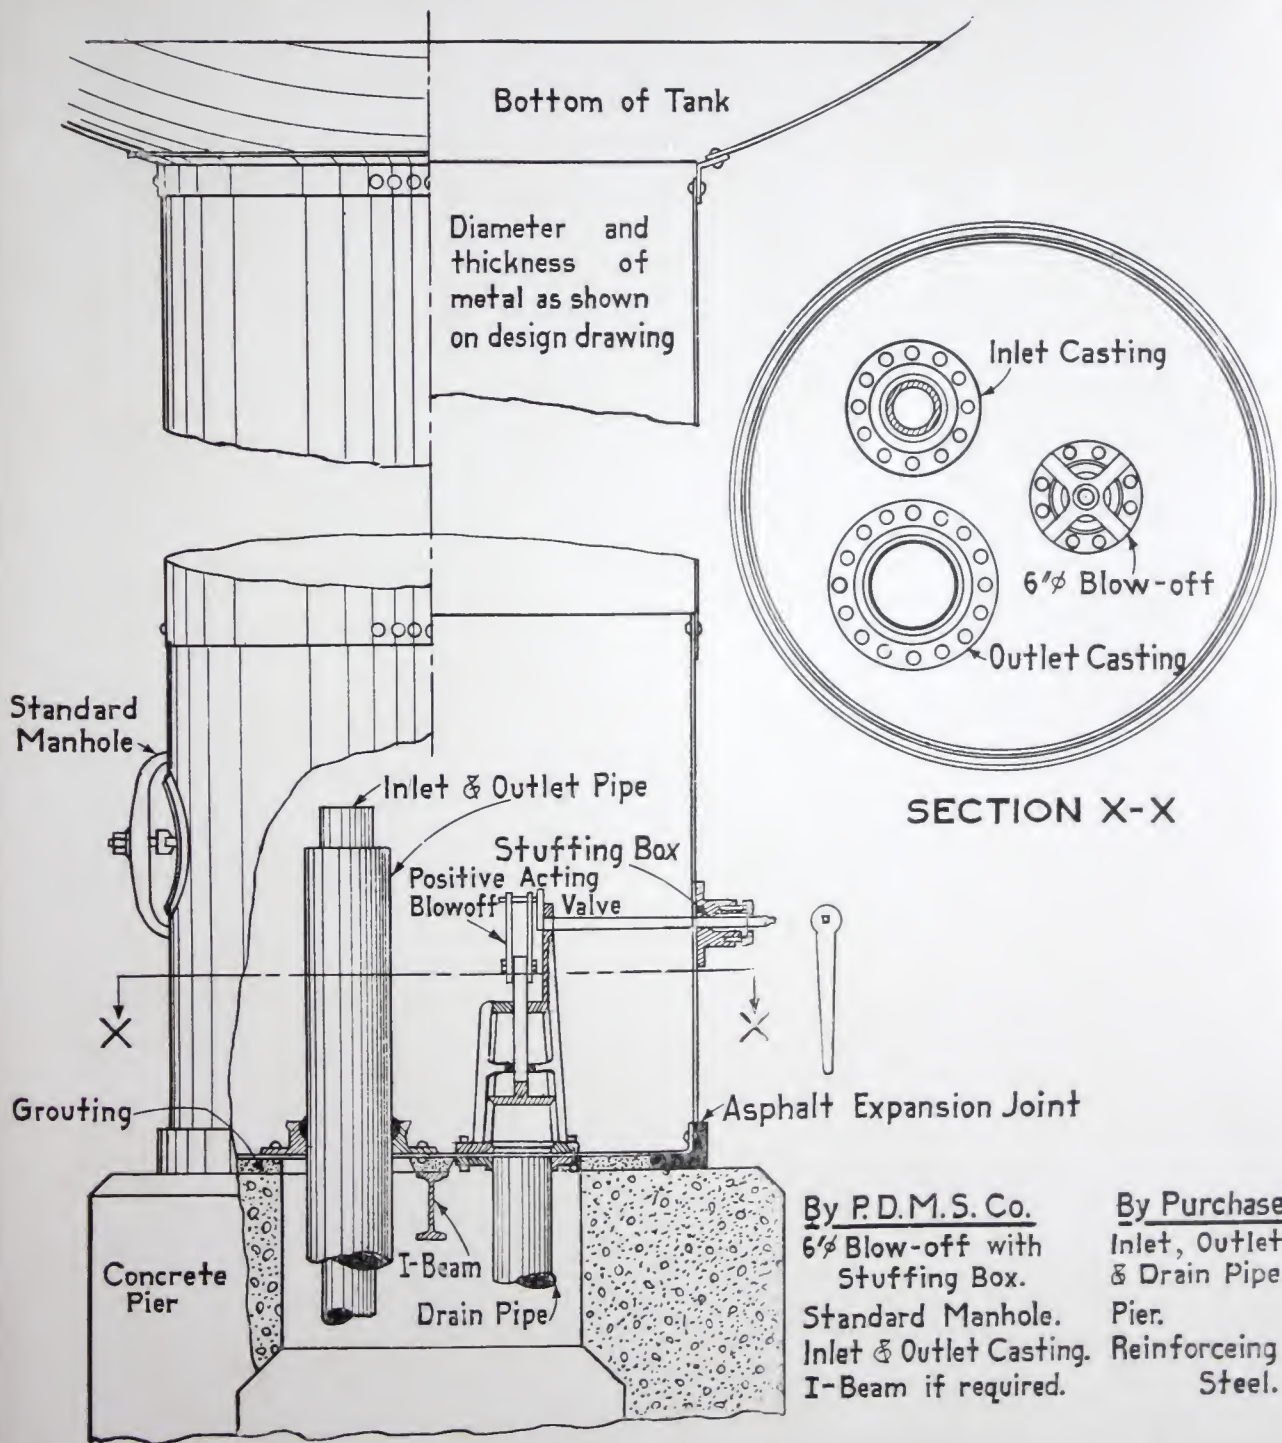 Bottom of Tank
Diameter and
thickness of
metal as shown
on design drawing
Inlet Casting
6"ϕ Blow-off
Outlet Casting
SECTION X-X
Standard
Manhole
Inlet & Outlet Pipe
Stuffing Box
Positive Acting
Blowoff Valve
X X
Grouting
Asphalt Expansion Joint
Concrete
Pier
I-Beam
Drain Pipe
By P.D.M.S. Co.
6"ϕ Blow-off with
Stuffing Box.
Standard Manhole.
Inlet & Outlet Casting.
I-Beam if required.
By Purchase
Inlet, Outlet
& Drain Pipe
Pier.
Reinforceing
Steel.